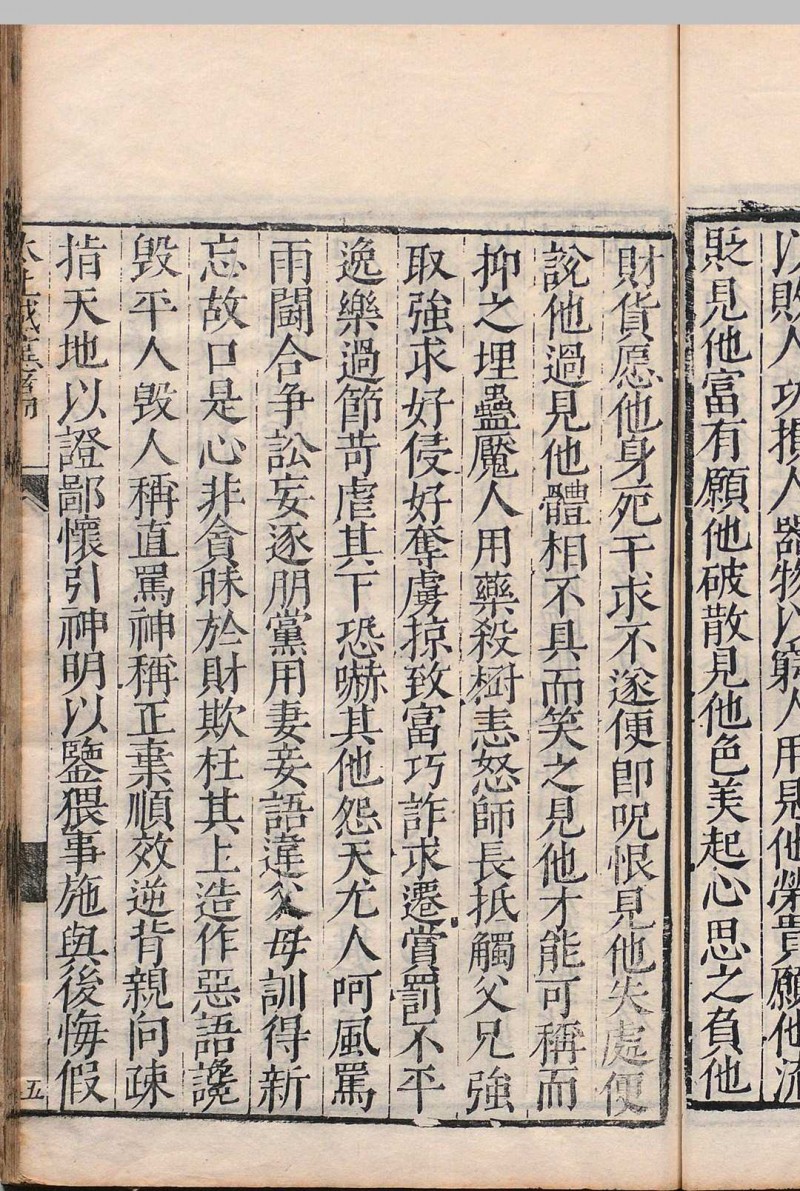 以敗人功損人器物以窮人用見他榮貴願他流
貶見他富有願他破散見他色美起心思之負他
財貨愿他身死干求不遂便卽呪恨見他失處便
說他過見他體相不具而笑之見他才能可稱而
抑之埋蠱魘人用藥殺樹恚怒師長抵觸父兄強
取強求好侵好奪虜掠致富巧詐求遷賞罰不平
逸樂過節苛虐其下恐嚇其他怨天尤人呵風罵
雨鬭合争訟妄逐朋黨用妻妾語違父母訓得新
忘故口是心非貪昧於財欺枉其上造作惡語讒
毀平人毀人稱直罵神稱正棄順效逆背親向疎
指天地以證鄙懷引神明以鑒猥事施與後悔假
五